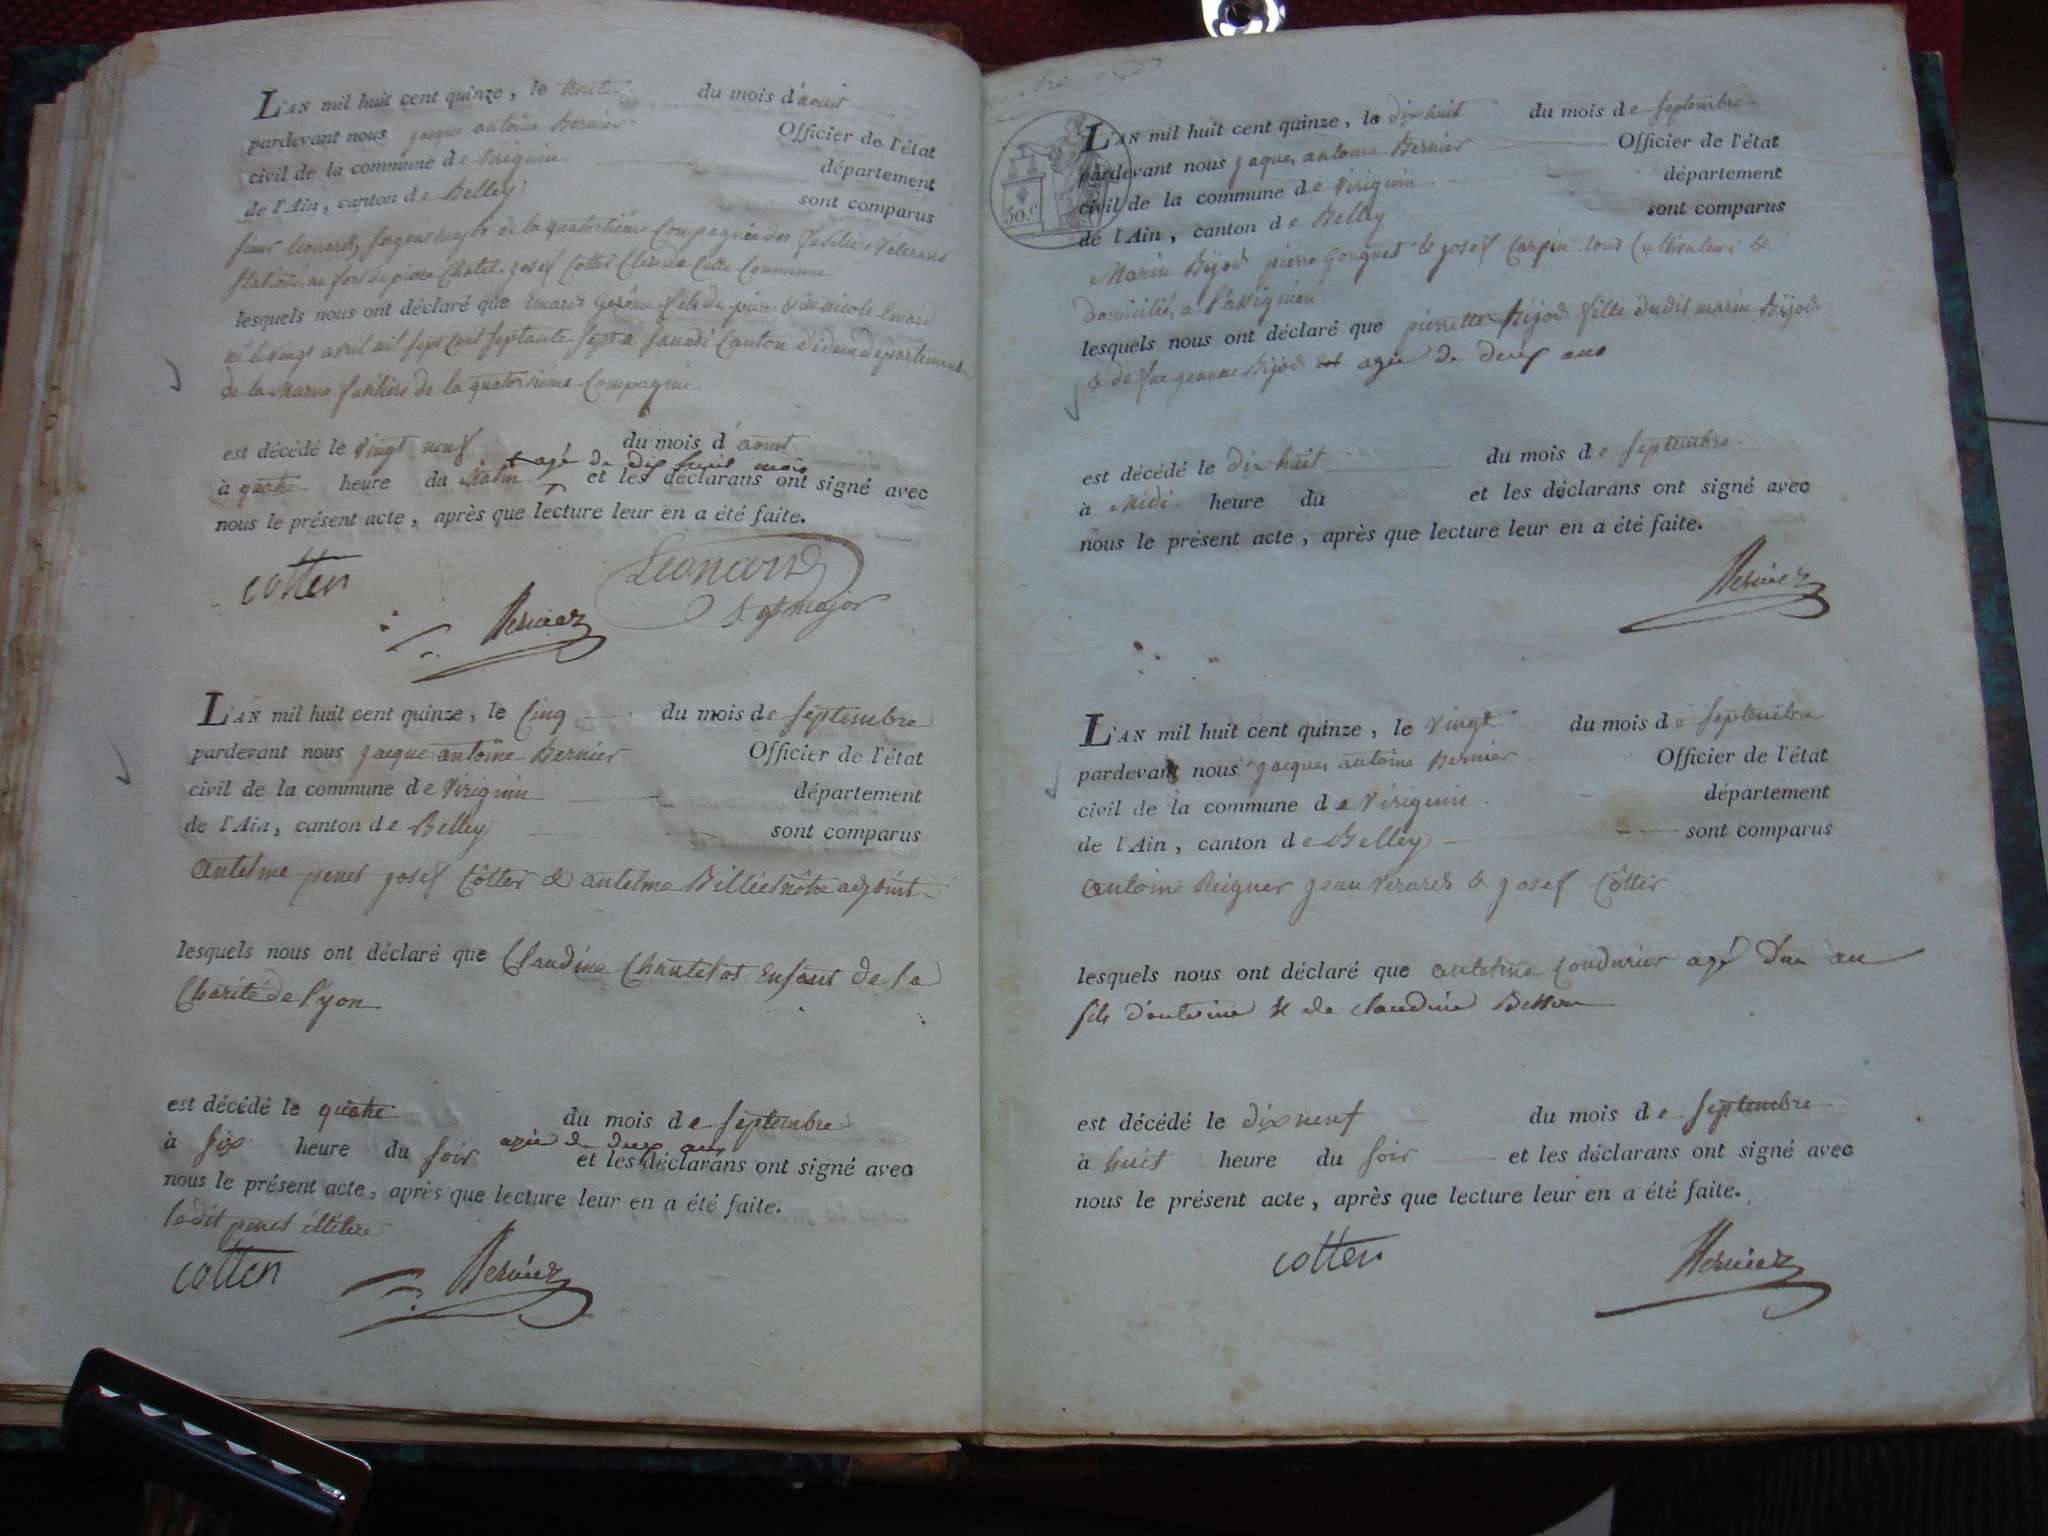 L'AN mil huit cent quinze, le trente du mois d'aout
pardevant nous jacque antoine Bernier Officier de l'état
civil de la commune de Virignin département
de l'Ain, canton de Belley sont comparus
sieur Leonard, sergent major de la quatorsiéme Compagnie des fusiliers Véterans
stationé au fort de pierre Chatel, josef Cotter Clerc de Cette Commune
lesquels nous ont déclaré que Emard fils de & de nicole Emard
né le vingt avril mil sept cent septante sept a Canton département
de la Marne fusiliers de la quatorsiéme Compagnie
est décédé le Vingt neuf du mois d'aout
agé de dix huit mois
à quatre heure du Matin et les déclarans ont signé avec
nous le présent acte, après que lecture leur en a été faite.
cotter Leonard
Bernier s. gt major
L'AN mil huit cent quinze, le Cinq du mois de septembre
pardevant nous jacque antoine Bernier Officier de l'état
civil de la commune de Virignin département
de l'Ain, canton de Belley sont comparus
antelme penet josef Côtter & antelme Billiet nôtre adjoint
lesquels nous ont déclaré que Claudine Chantelot Enfant de la
Charité de Lyon
est décédé le quatre du mois de septembre
agée de deux ans
à six heure du soir et les déclarans ont signé avec
nous le présent acte, après que lecture leur en a été faite.
ledit penet illitere
cotter Bernier
50.c
L'AN mil huit cent quinze, le dix huit du mois de septembre
pardevant nous jaques antoine Bernier Officier de l'état
civil de la commune de Virignin département
de l'Ain, canton de Belley sont comparus
Marin Bijod pierre Gonguet & josef Carpin tous Cultivateurs &
domiciliés a
lesquels nous ont déclaré que pierrette Bijod fille dudit marin Bijod
& de fue jeanne Bijod est agée de deux ans
est décédé le dix huit du mois de septembre
à Midi heure du et les déclarans ont signé avec
nous le présent acte, après que lecture leur en a été faite.
Bernier
L'AN mil huit cent quinze, le Vingt du mois de septembre
pardevant nous jacques antoine Bernier Officier de l'état
civil de la commune de Virignin département
de l'Ain, canton de Belley sont comparus
antoine Reigner jean Verard & josef Côtter
lesquels nous ont déclaré que antelme Condurier agé d'un an
fils d'antoine & de claudine Besson
est décédé le dix neuf du mois de septembre
à huit heure du soir et les déclarans ont signé avec
nous le présent acte, après que lecture leur en a été faite.
cotter Bernier